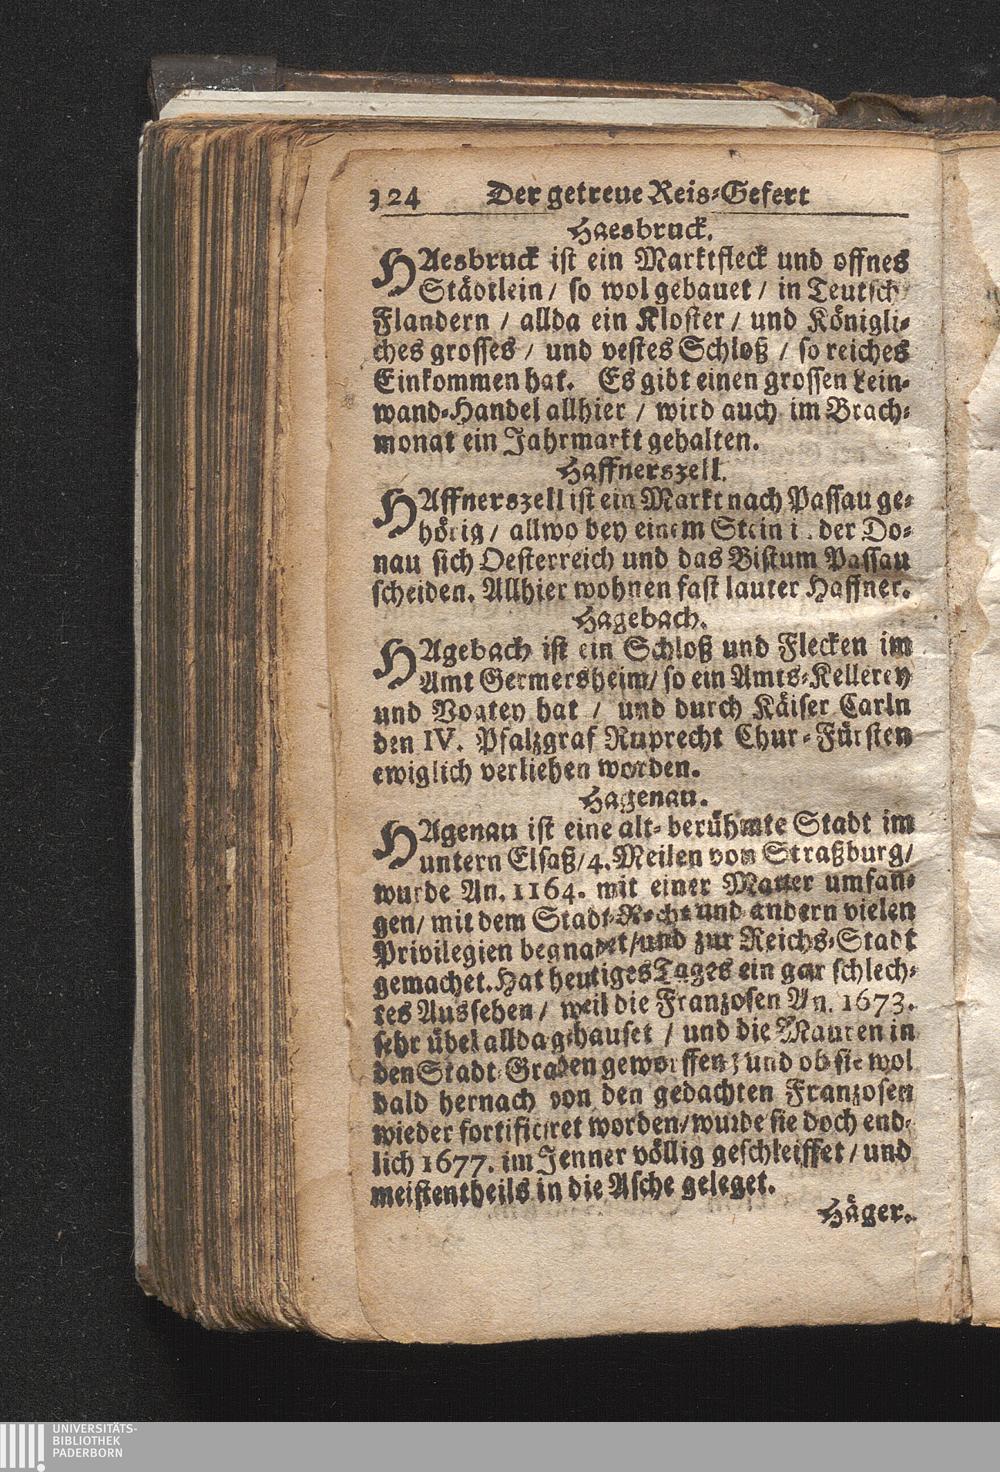 324 Der getreue Reis-Gefert
Haesbruck.
HAesbruck ist ein Marktfleck und offnes
Städtlein / so wol gebauet / in Teutsch
Flandern / allda ein Kloster / und Königli-
ches grosses / und vestes Schloß / so reiches
Einkommen hat. Es gibt einen grossen Lein-
wand-Handel allhier / wird auch im Brach-
monat ein Jahrmarkt gehalten.
Haffnerszell.
HAffnerszell ist ein Markt nach Passau ge-
hörig / allwo bey einem Stein i. der Do-
nau sich Oesterreich und das Bistum Passau
scheiden. Allhier wohnen fast lauter Haffner.
Hagebach.
HAgebach ist ein Schloß und Flecken im
Amt Germersheim / so ein Amts-Kellerey
und Vogtey hat / und durch Käiser Carln
den IV. Pfalzgraf Ruprecht Chur-Fürsten
ewiglich verliehen worden.
Hagenau.
HAgenau ist eine alt-berühmte Stadt im
untern Elsaß / 4. Meilen von Straßburg /
wurde An. 1164. mit einer Mauer umfan-
gen / mit dem Stadt-Recht und andern vielen
Privilegien begnadet / und zur Reichs-Stadt
gemachet. Hat heutiges Tages ein gar schlech-
tes Aussehen / weil die Franzosen An. 1673.
sehr übel allda gehauset / und die Mauren in
den Stadt-Graben geworffen ; und ob sie wol
bald hernach von den gedachten Franzosen
wieder fortificiret worden / wurde sie doch end-
lich 1677. im Jenner völlig geschleiffet / und
meistentheils in die Asche geleget.
Häger.
UNIVERSITÄTS-
BIBLIOTHEK
PADERBORN